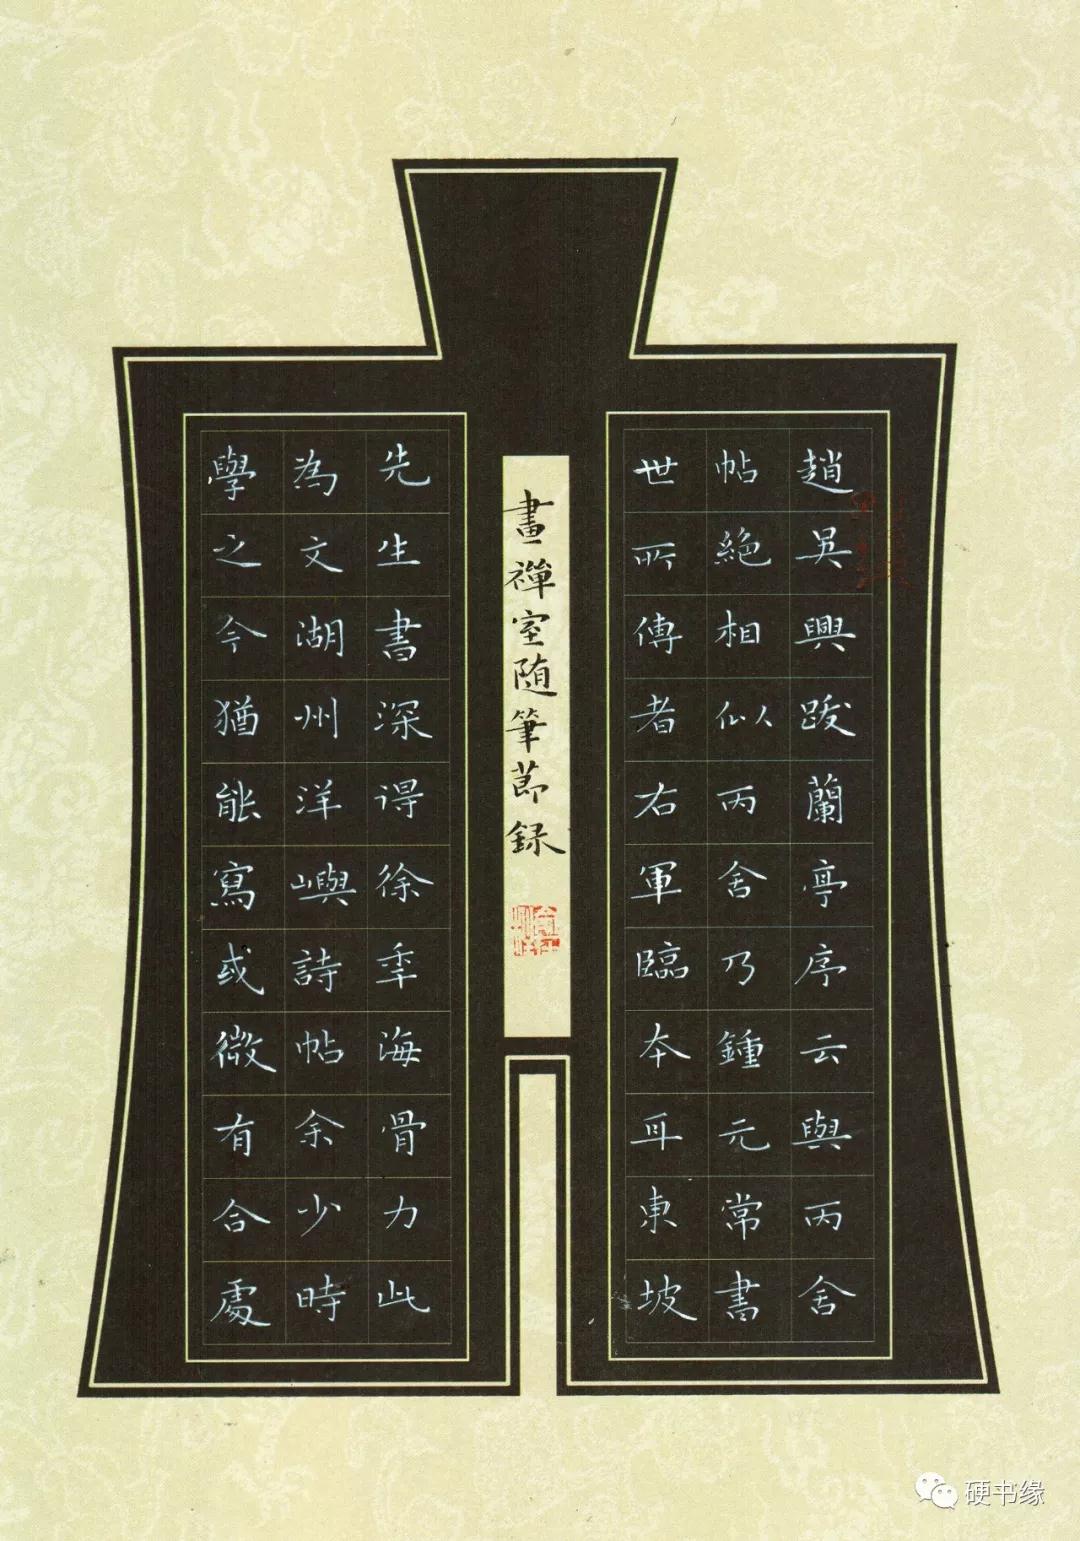 趙吳興跋蘭亭序云與丙舍
帖絶相似丙舍乃鍾元常書
世所傳者右軍臨本耳東坡
畫禪室随筆節録
先生書深得徐季海骨力此
為文湖州洋嶼詩帖余少時
學之今猶能寫或微有合處
硬书缘